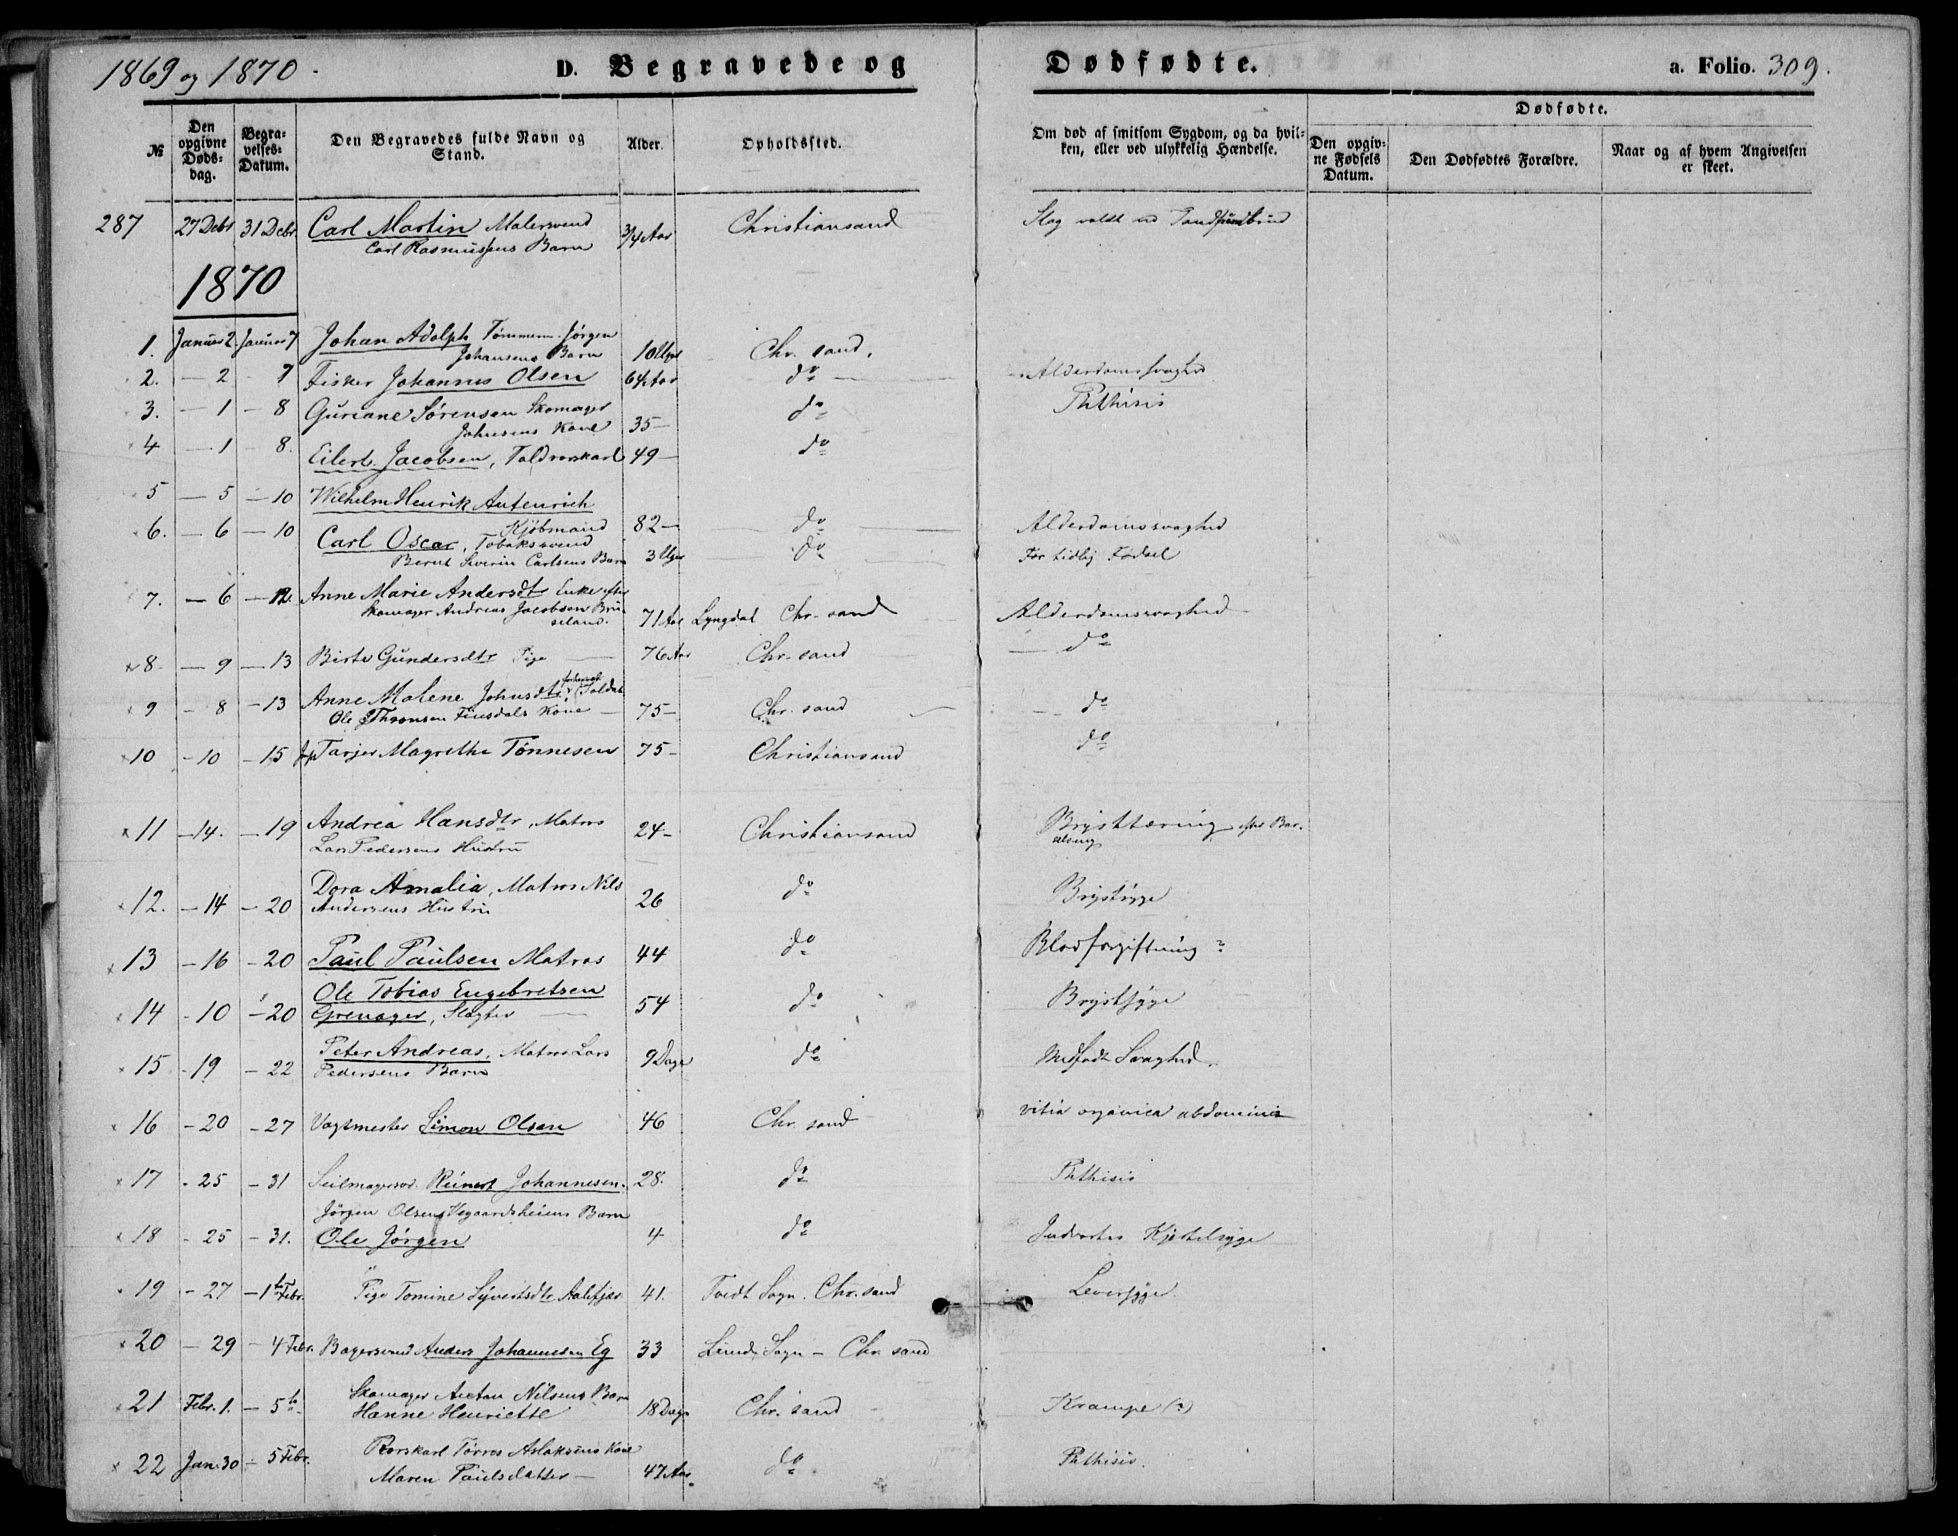 1869 og 1870.
D. Begravede og Dødfødte.
a. Folio. 309.
№
Den opgivne Døds-dag.
Begra-velses-Datum.
Den Begravedes fulde Navn og Stand.
Alder.
Opholdssted.
Om død af smitsom Sygdom, og da hvil-ken, eller ved ulykkelig Hændelse.
Dødfødte.
Den opgiv-ne Fødsels Datum.
Den Dødfødtes Forældre.
Naar og af hvem Angivelsen er skeet.
287 27 Debr 31 Debr. Carl Martin Malersvend 3/4 Aar Christiansand Slag
Carl Rasmussens Barn
1870
1. Januar 2 Januar 7 Johan Adolph Tømmerm. Jørgen
Johansens Barn 10 Uger Chr. sand.
2. — 2 - 7 Fisker Johannes Olsen 64 Aar do Alderdomssvaghed
3. — 1 — 8 Guriane Sørensen Skomager do Phthisis
Johnsens Kone 35 —
4 — 1 - 8. Eilert Jacobsen, Toldrorskarl 49 — do
5 — 5 — 10 Wilhelm Henrik Autenrich
Kjøbmand 82 — do Alderdomssvaghed
6. — 6 — 10 Carl Oscar, Tobaksvend do For tidlig Fødsel
Bernt Severin Carlsens Barn 3 Uger
7. — 6 — 12. Anne Marie Andersdtr Enke efter
Skomager Andreas Jacobsen Bru-
seland. 71 Aar Lyngdal Chr. sand Alderdomssvaghed
8 — 9 — 13 Birte Gundersdtr Pige 76 Aar Chr. sand do
9 - 8 - 13 Anne Malene Johnsdtr, Toldb.
Ole Thronsen Finsdals Kone 75 — Chr. sand do
10 - 10 - 15 Tarjer Magrethe Tønnesen 75 - Christiansand do
11 - 14. - 19 Andrea Hansdtr, Matros 24 - Christiansand Brysttæring efter Bar-
Lars Pedersens Hustru selseng
12. - 14 - 20 Dora Amalia, Matros Nils do Brystsyge
Andersens Hustru 26
13 - 16 - 20 Paul Paulsen Matros 44 do Blodforgiftning ?
14 - 10 - 20 Ole Tobias Engebretsen
Grenager, Slagter 54 do Brystsyge
15 - 19 - 22 Peter Andreas, Matros Lars 9 Dage do Medfødt Svaghed.
Pedersens Barn
16 - 20 - 27 Vagtmester Simon Olsen 46 Chr. sand vitia organica abdominis
17 - 25 - 31 Seilmagersv. Reinert Johannesen. 28. do Phthisis
18 - 25 - 31. Jørgen Olsen Vegaardsheiens Barn
Ole Jørgen 4 do Indvortes Kjertelsyge
19 - 27 - 1ste Febr. Pige Tomine Syvertsdtr Aalefjær 41. Tvedt Sogn. Chr. sand Leversyge
20 - 29 - 4 Febr. Bagersvend Anders Johannesen Eg 33 Lunds Sogn - Chr. sand
21 Febr. 1. - 5te Skomager Anton Nilsens Barn
Hanne Henriette 18 Dage Chr. sand Krampe (?)
22 Jan. 30 - 5 Febr. Rorskarl Tørres Aslaksens Kone
Maren Paulsdatter — 47 Aar. do Phthisis.